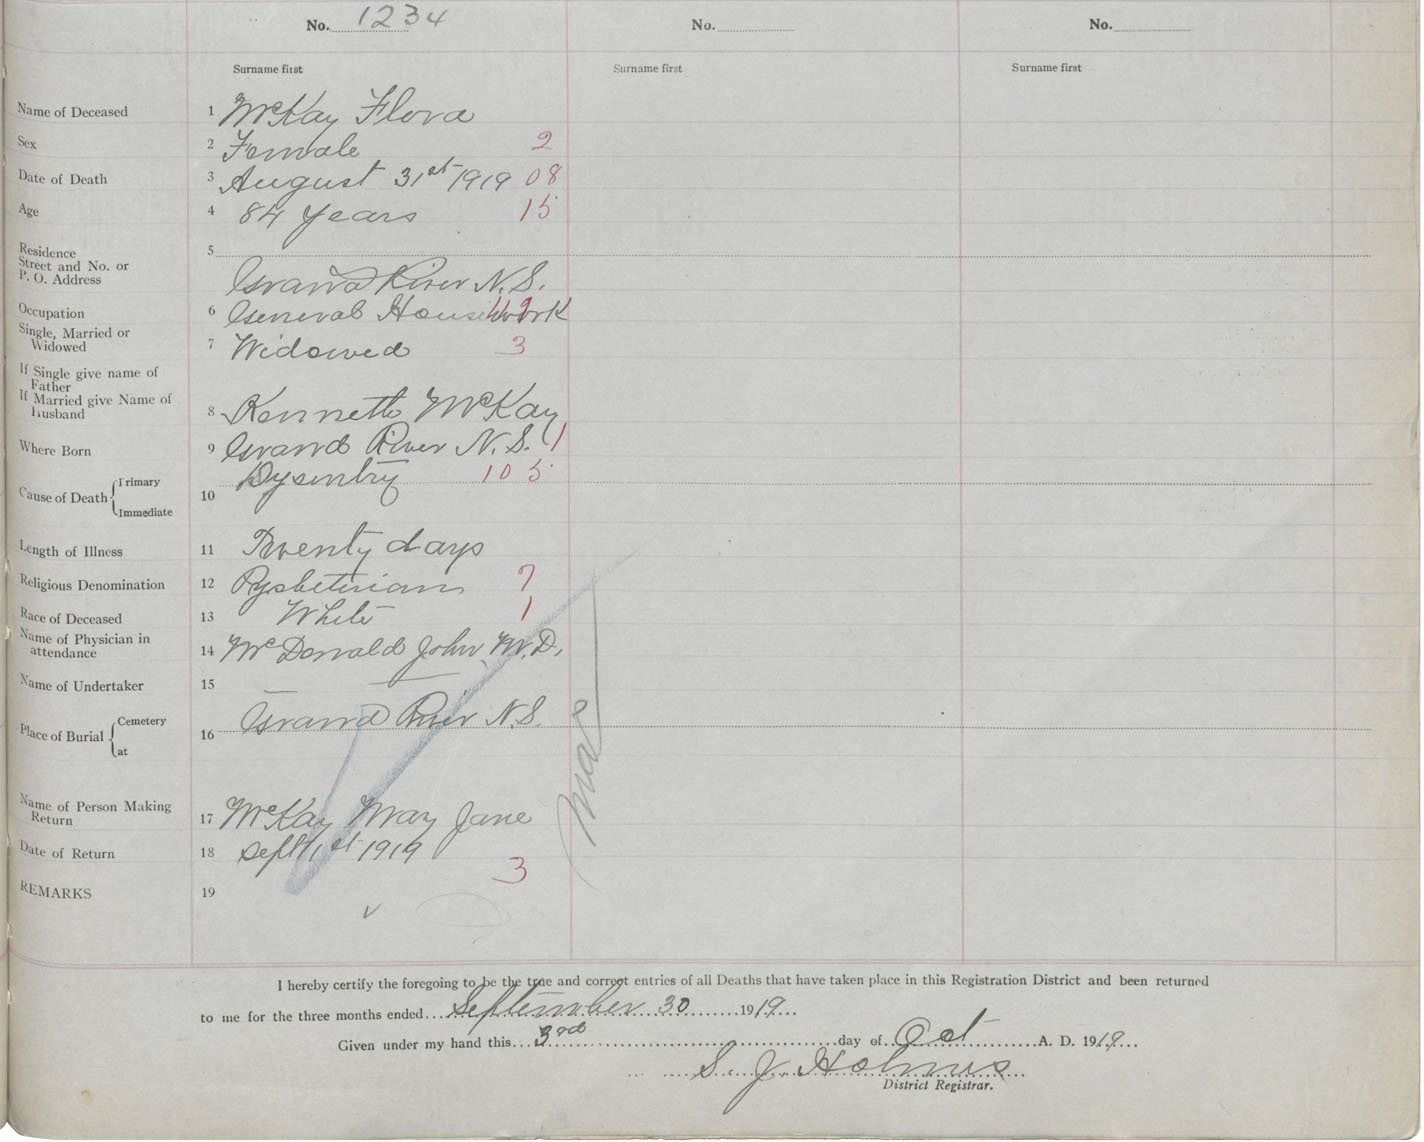 No. 1234 No. No.
Surname first Surname first Surname first
Name of Deceased 1 McKay Flora
Sex 2 Female 2
Date of Death 3 August 31st 1919 08
Age 4 84 years 15
Residence 5
Street and No. or
P. O. Address Grand River N.S.
Occupation 6 General Housework
Single, Married or
Widowed 7 Widowed 3
If Single give name of
Father
If Married give Name of
Husband 8 Kenneth McKay
Where Born 9 Grand River N.S. 1
Cause of Death Primary Dysentry 10 5
10
Immediate
Length of Illness 11 Twenty days
Religious Denomination 12 Pysbeterian 7
Race of Deceased 13 White 1
Name of Physician in
attendance 14 McDonald John, M.D.
Name of Undertaker 15 —
Place of Burial Cemetery Grand River N.S.
16
at
Name of Person Making
Return 17 McKay May Jane
Date of Return 18 Sept 1st 1919
3
REMARKS 19
I hereby certify the foregoing to be the true and correct entries of all Deaths that have taken place in this Registration District and been returned
to me for the three months ended September 30 1919
Given under my hand this 3rd day of Oct A. D. 1919
S. J. Holmes
District Registrar.